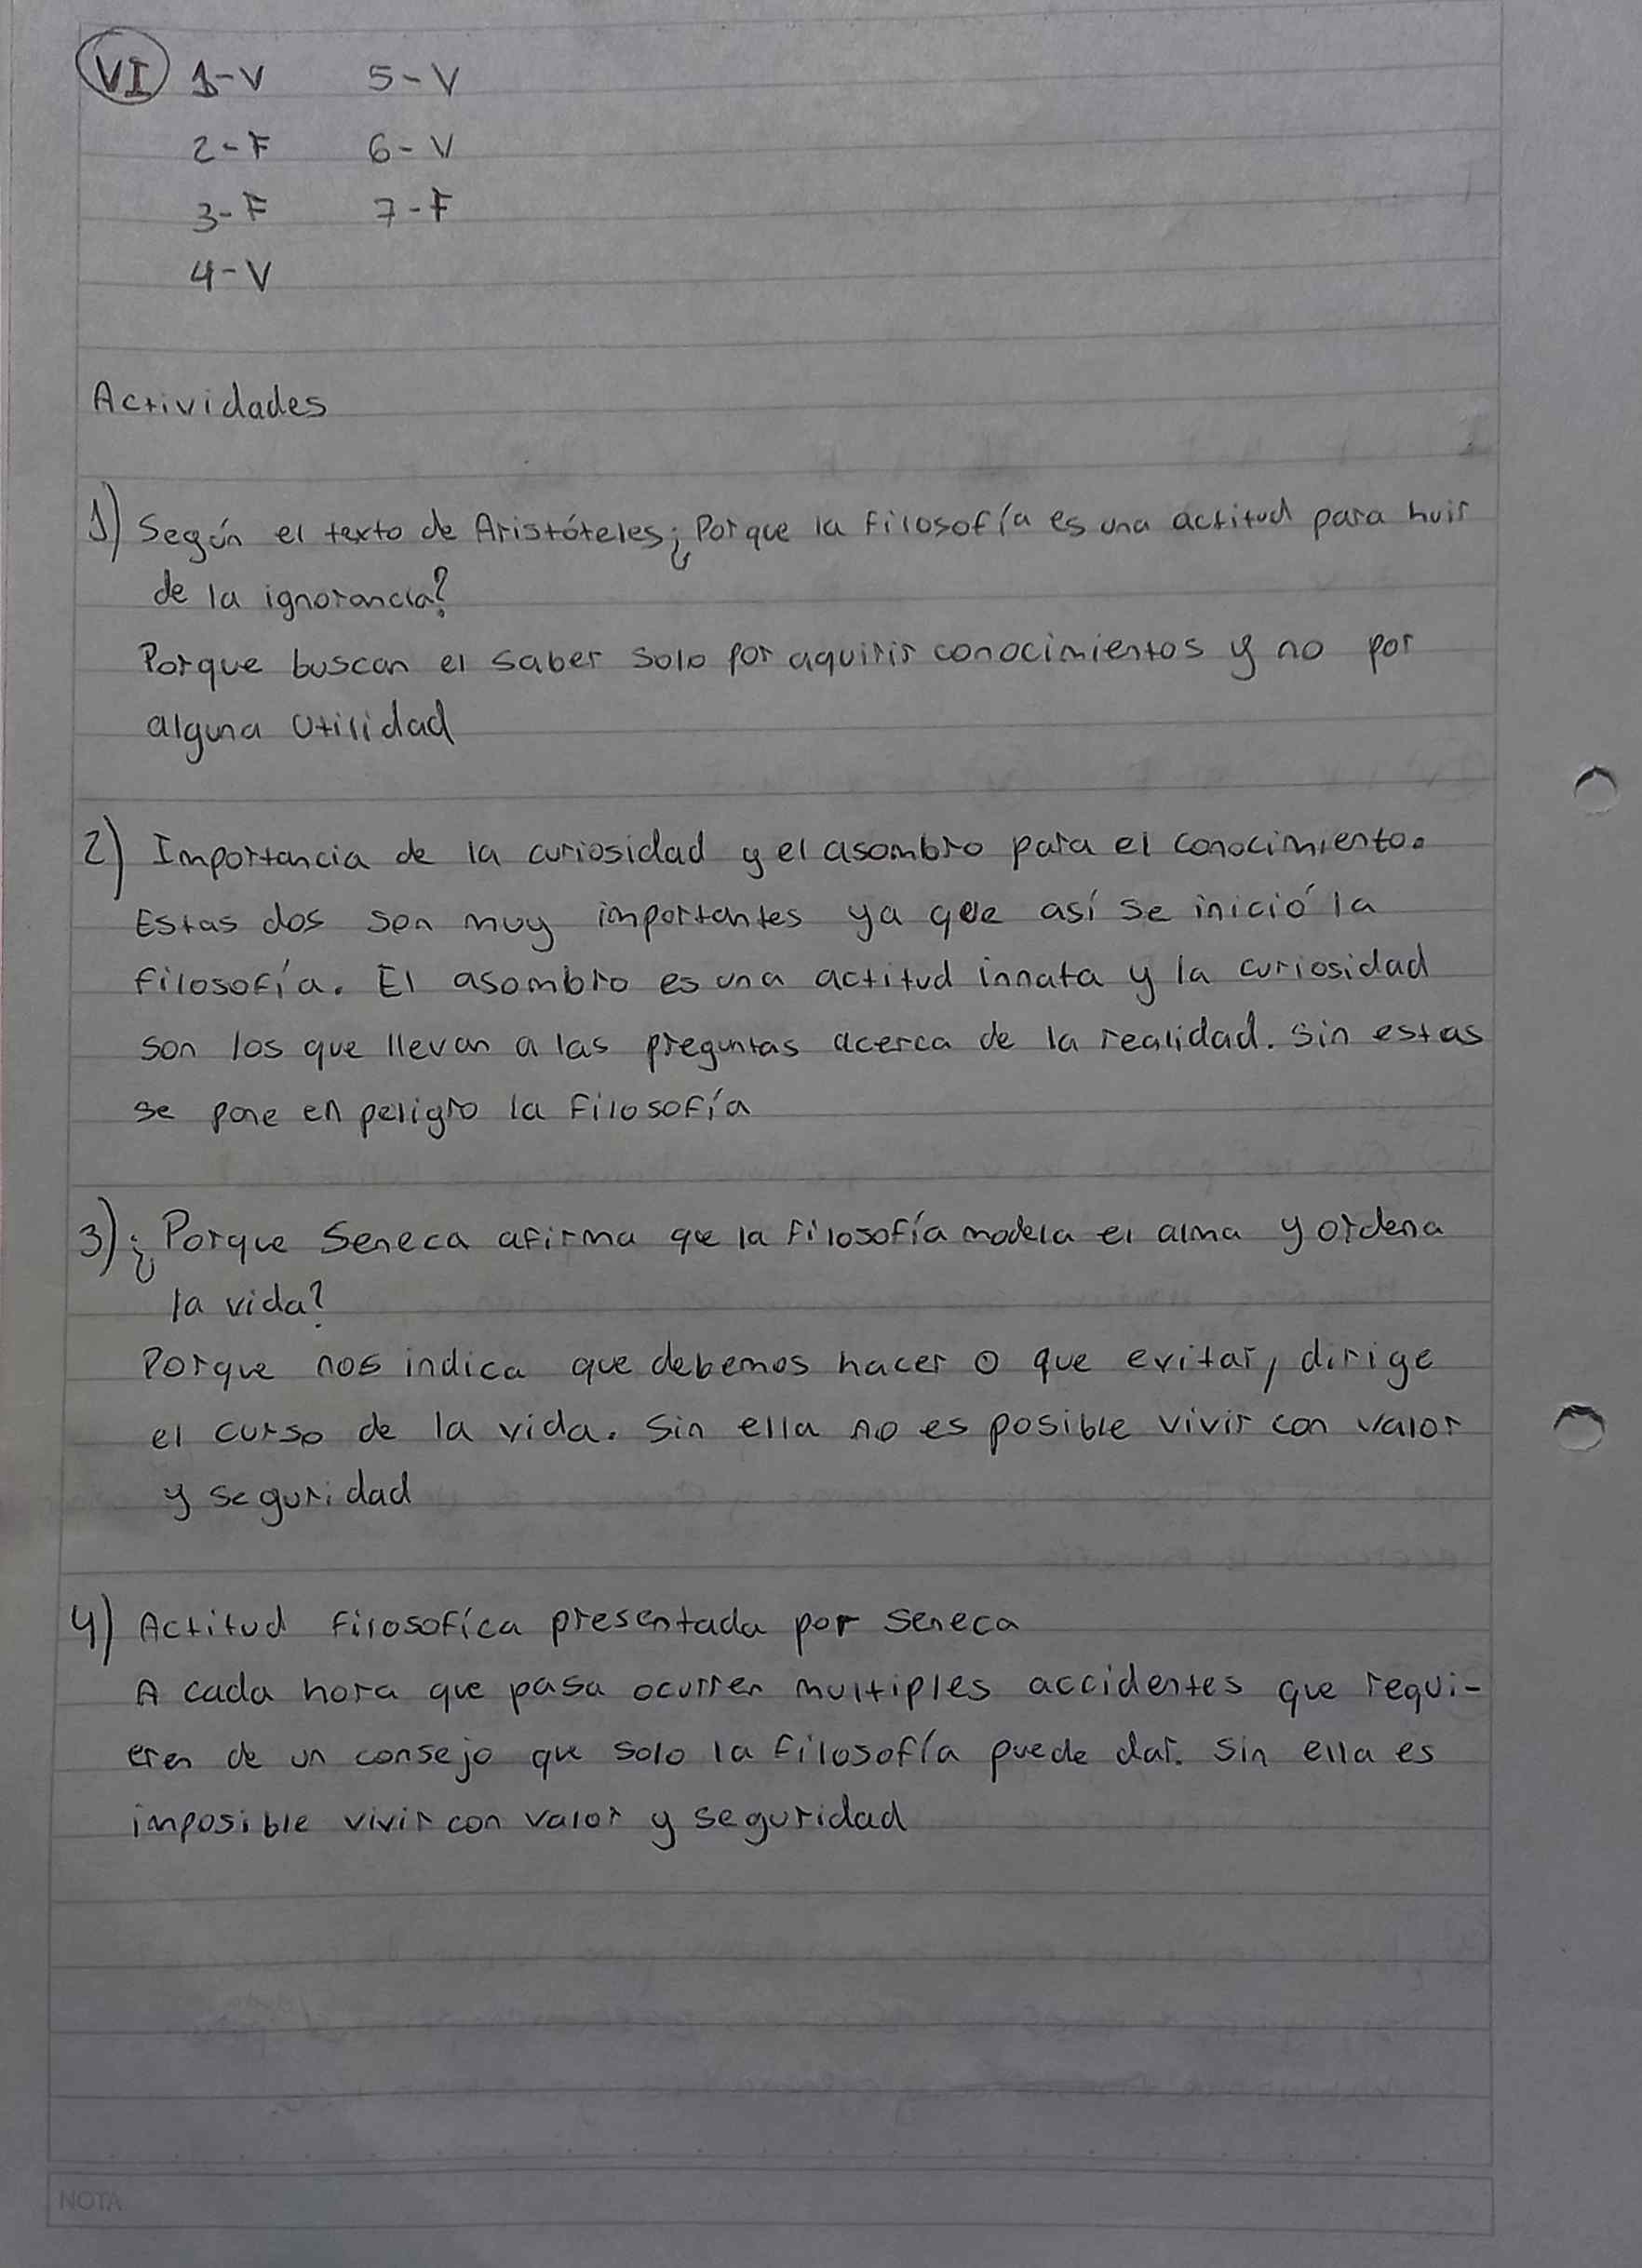 VI 1-V 5-V
2-F 6-V
3-F 7-F
4-V
Actividades
1) Según el texto de Aristóteles ¿Porque la filosofía es una actitud para huir
de la ignorancia?
Porque buscan el saber solo por aquirir conocimientos y no por
alguna utilidad
2) Importancia de la curiosidad y el asombro para el conocimiento.
Estas dos son muy importantes ya que así se inició la
filosofía. El asombro es una actitud innata y la curiosidad
son los que llevan a las preguntas acerca de la realidad. Sin estas
se pone en peligro la filosofía
3) ¿Porque Seneca afirma que la filosofía modela el alma y ordena
la vida?
Porque nos indica que debemos hacer o que evitar, dirige
el curso de la vida. Sin ella no es posible vivir con valor
y seguridad
4) Actitud filosofíca presentada por Seneca
A cada hora que pasa ocurren multiples accidentes que requi-
eren de un consejo que solo la filosofía puede dar. Sin ella es
imposible vivir con valor y seguridad
NOTA